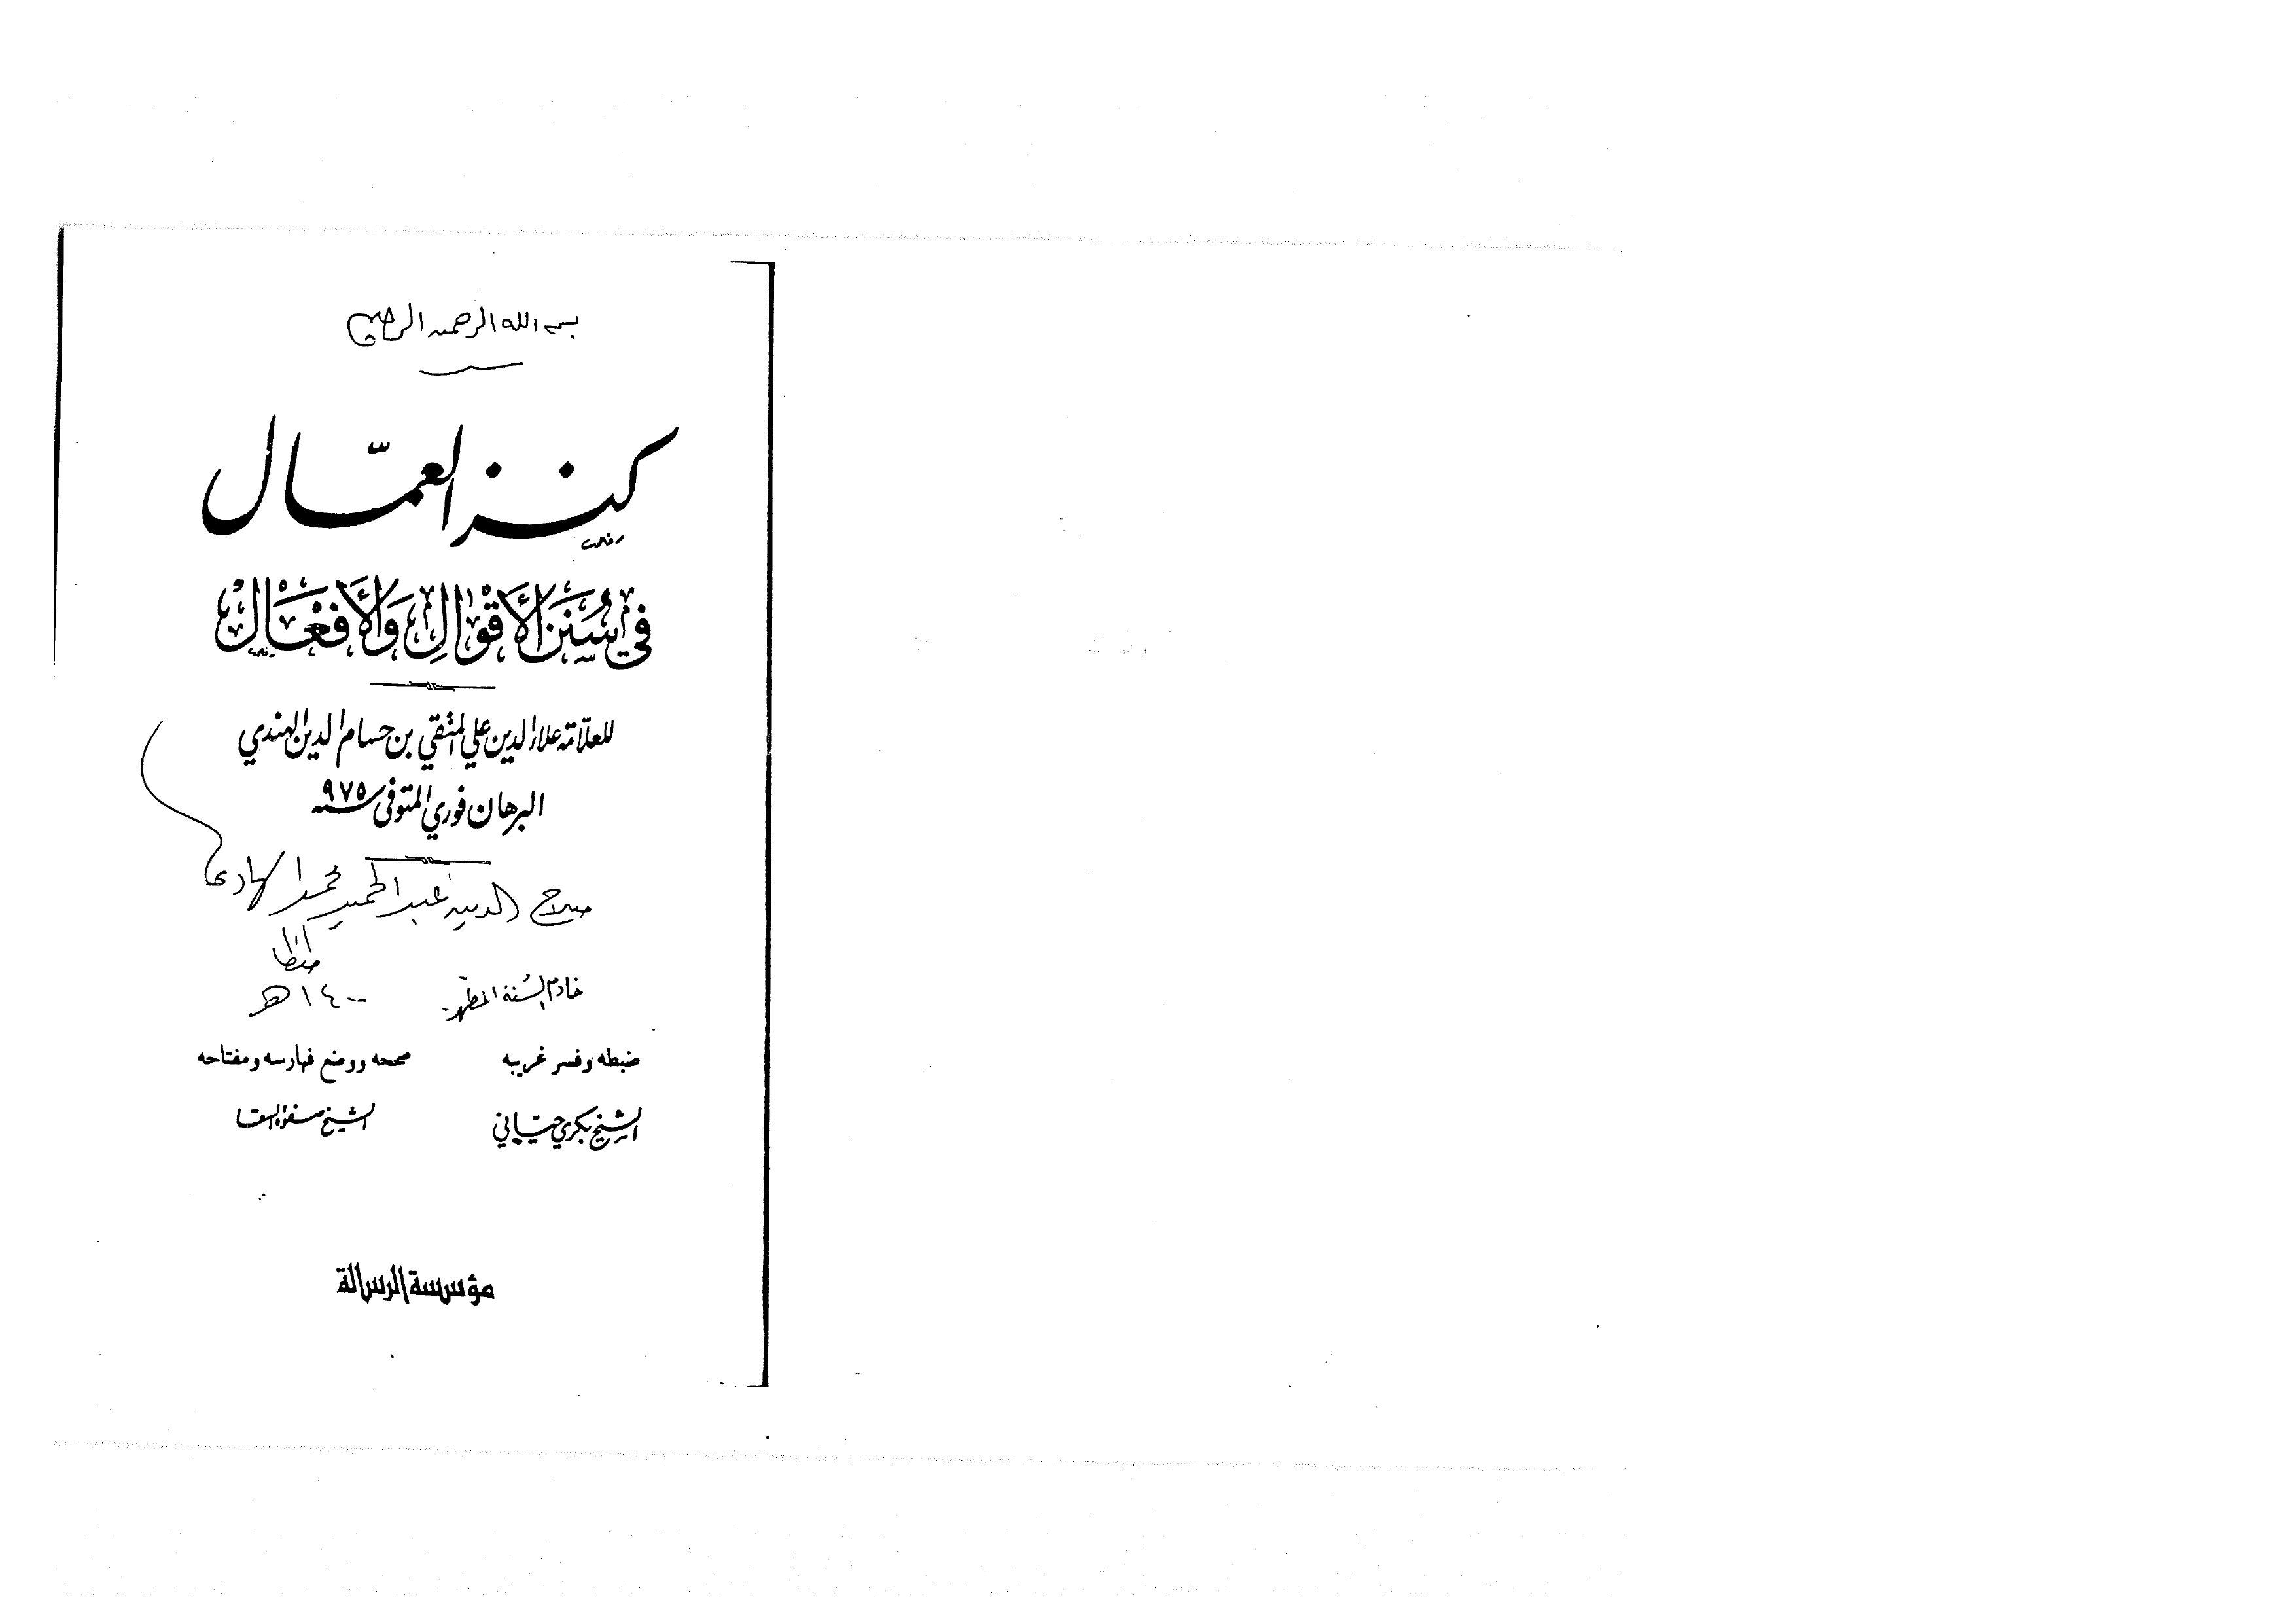 بسم الله الرحمن الرحيم
كنز العمّال
في سُنَنِ الأَقْوَالِ وَالأَفْعَالِ
للعلّامة علاء الدين علي المتقي بن حسام الدين الهندي
البرهان فوري المتوفى سنة ٩٧٥
صلاح الدين عبد الحميد محمد الهادي
طنطا
خادم السُنة المطهرة ١٤٠٠ هـ
ضبطه وفسر غريبه صححه ووضع فهارسه ومفتاحه
الشيخ بكري حيّاني الشيخ صفوة السقا
مؤسسة الرسالة